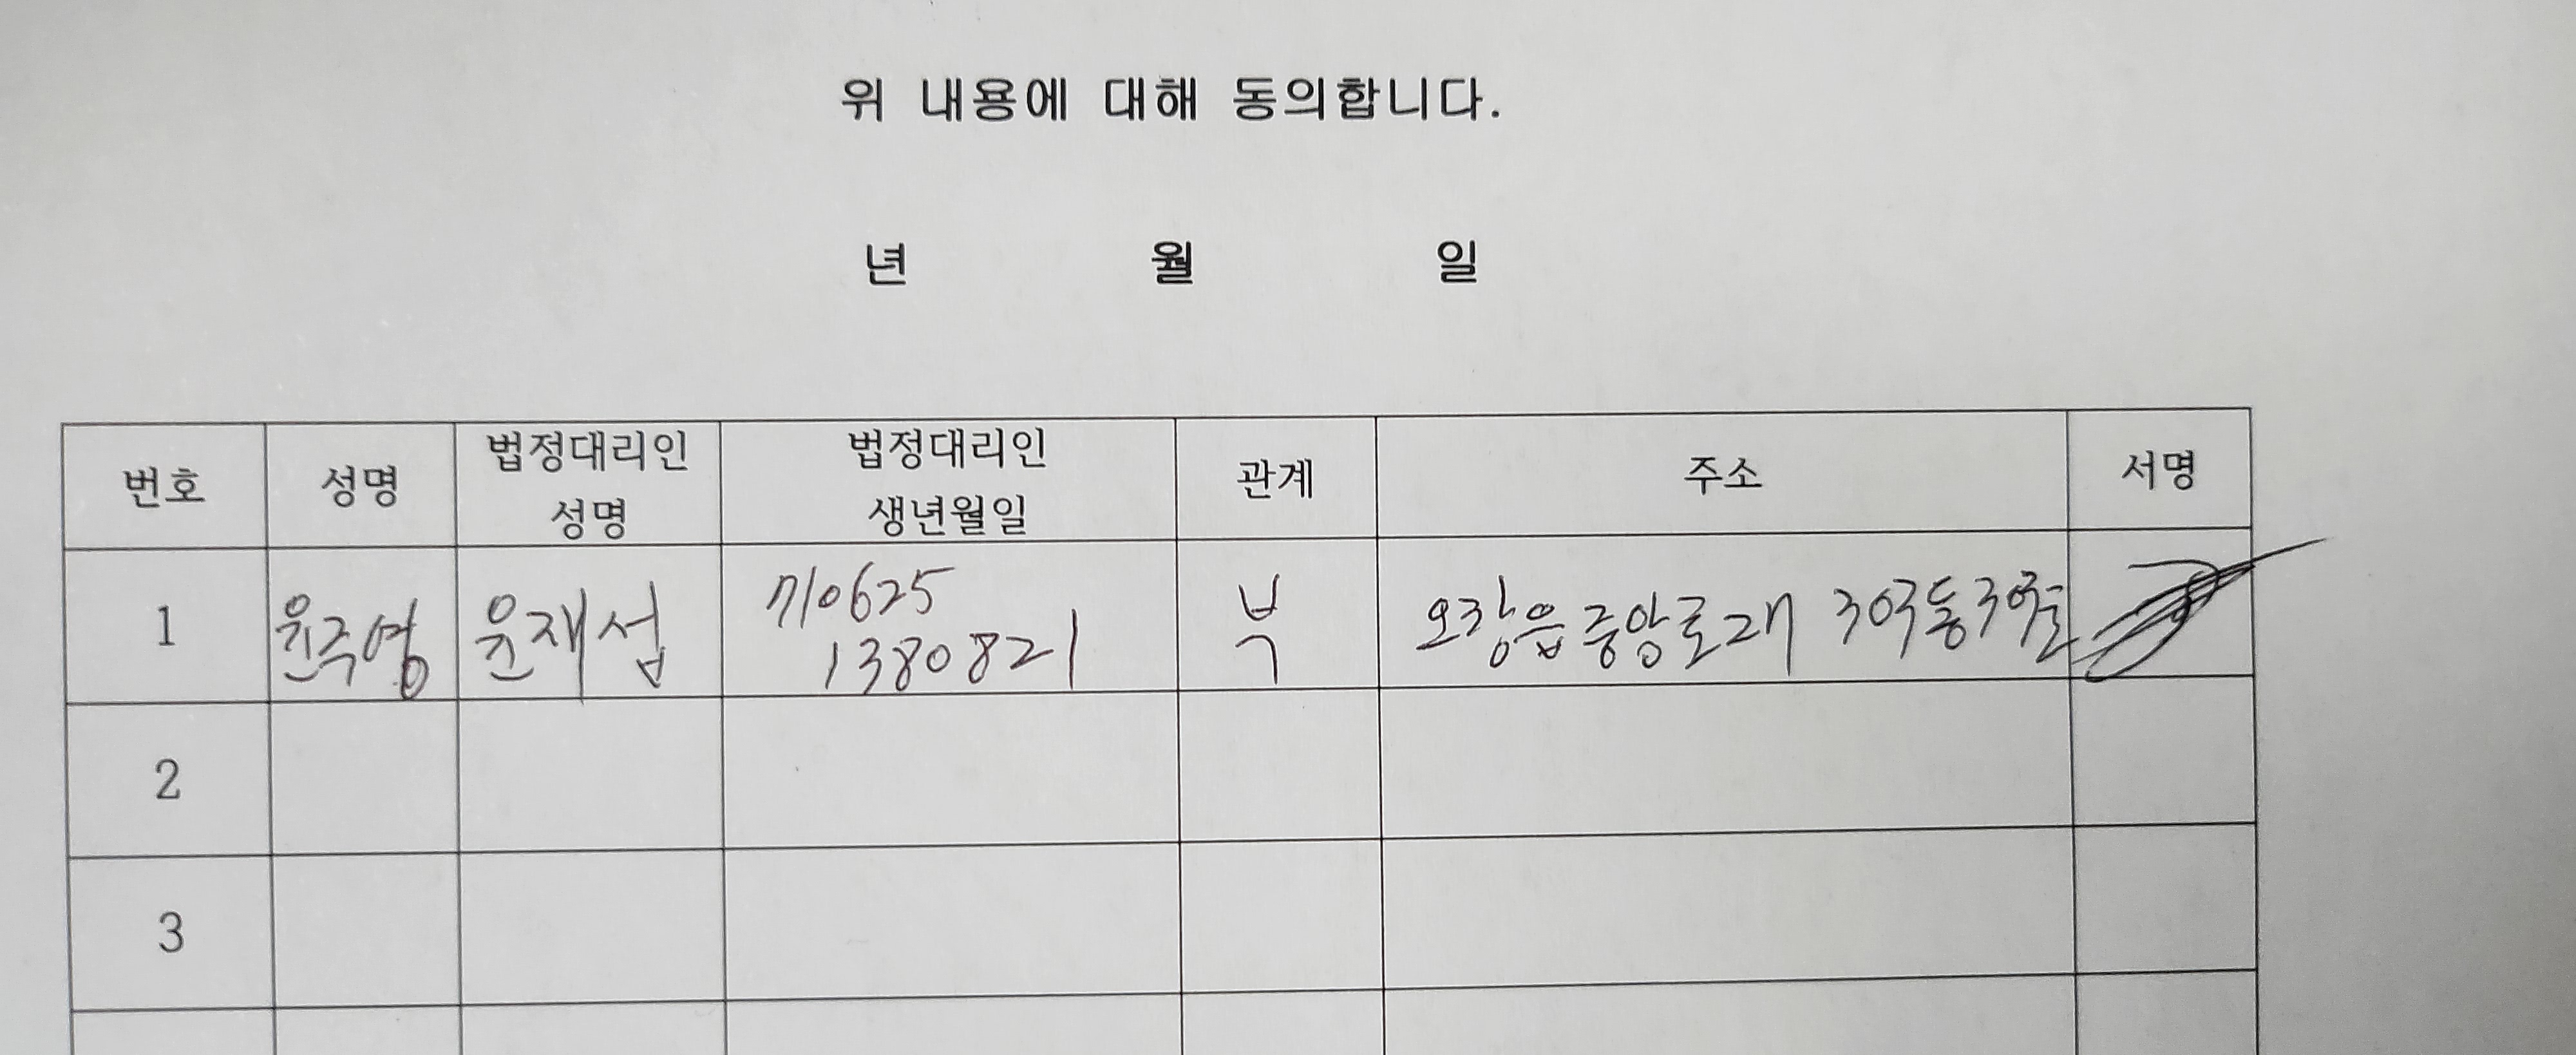 위 내용에 대해 동의합니다.
년 월 일
번호 성명 법정대리인 성명 법정대리인 생년월일 관계 주소 서명
1 윤주영 윤재섭 710625 1380821 부 오창읍 중앙로 303동
2
3